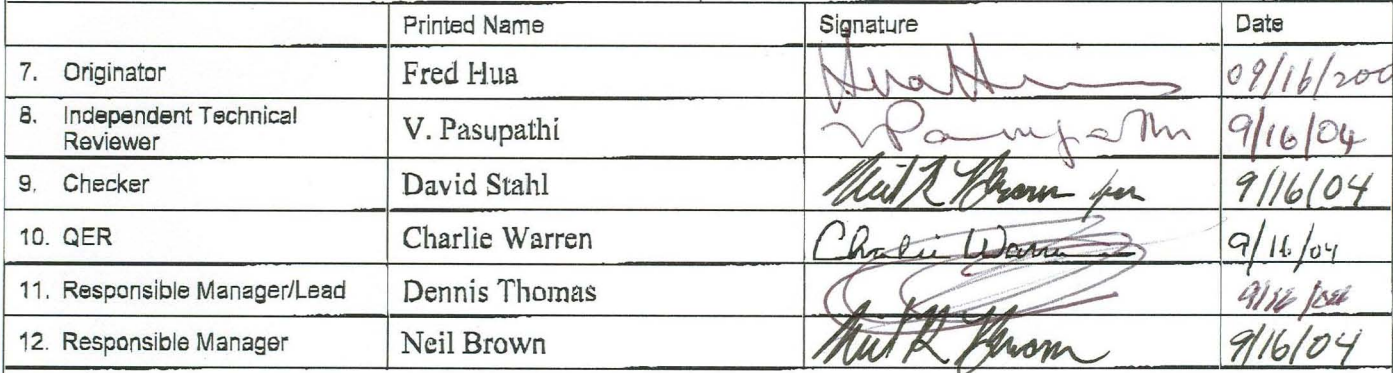 Printed Name Signature Date
7. Originator Fred Hua 09/16/200
8. Independent Technical Reviewer V. Pasupathi VPasupathi 9/16/04
9. Checker David Stahl Neil R Brown for 9/16/04
10. QER Charlie Warren Charlie Warren 9/16/04
11. Responsible Manager/Lead Dennis Thomas
12. Responsible Manager Neil Brown Neil R Brown 9/16/04